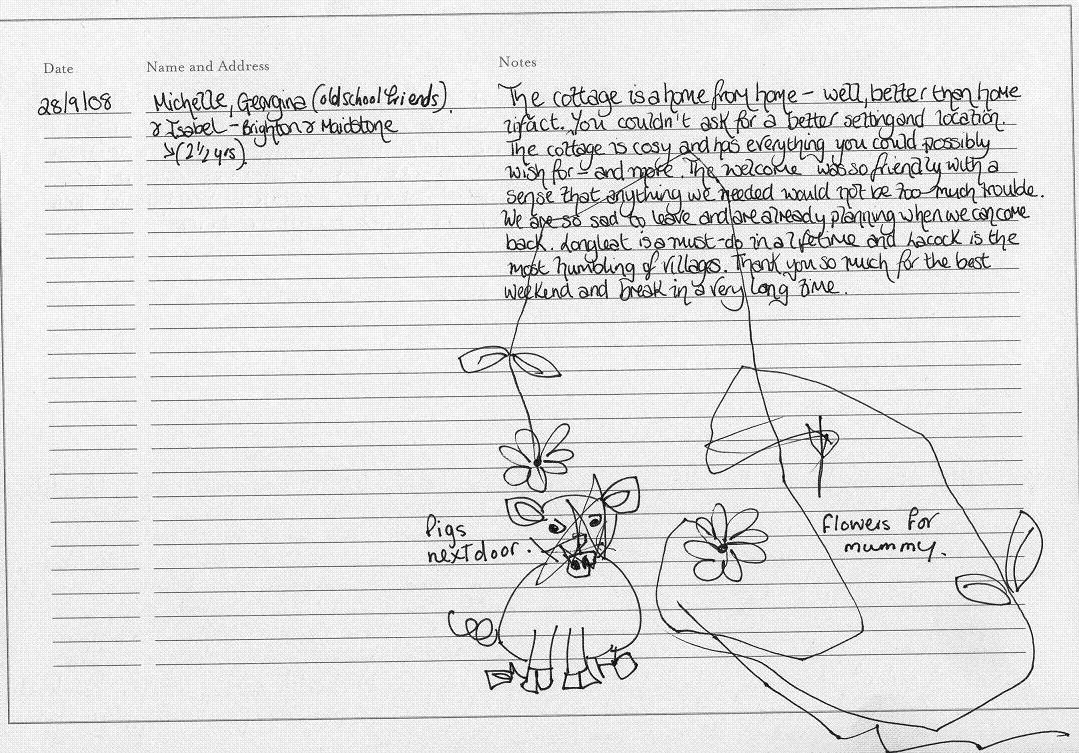 Date
Name and Address
Notes
28/9/08
Michelle, Georgina (old school friends).
& Isabel - Brighton & Maidstone
↳ (2 1/2 yrs).
The cottage is a home from home - well, better than home
in fact. You couldn't ask for a better setting and location.
The cottage is cosy and has everything you could possibly
wish for - and more. The welcome was so friendly with a
sense that anything we needed would not be too much trouble.
We are so sad to leave and are already planning when we can come
back. Longleat is a must-do in a lifetime and Lacock is the
most humbling of villages. Thank you so much for the best
weekend and break in a very long time.
Pigs
next door.
flowers for
mummy.